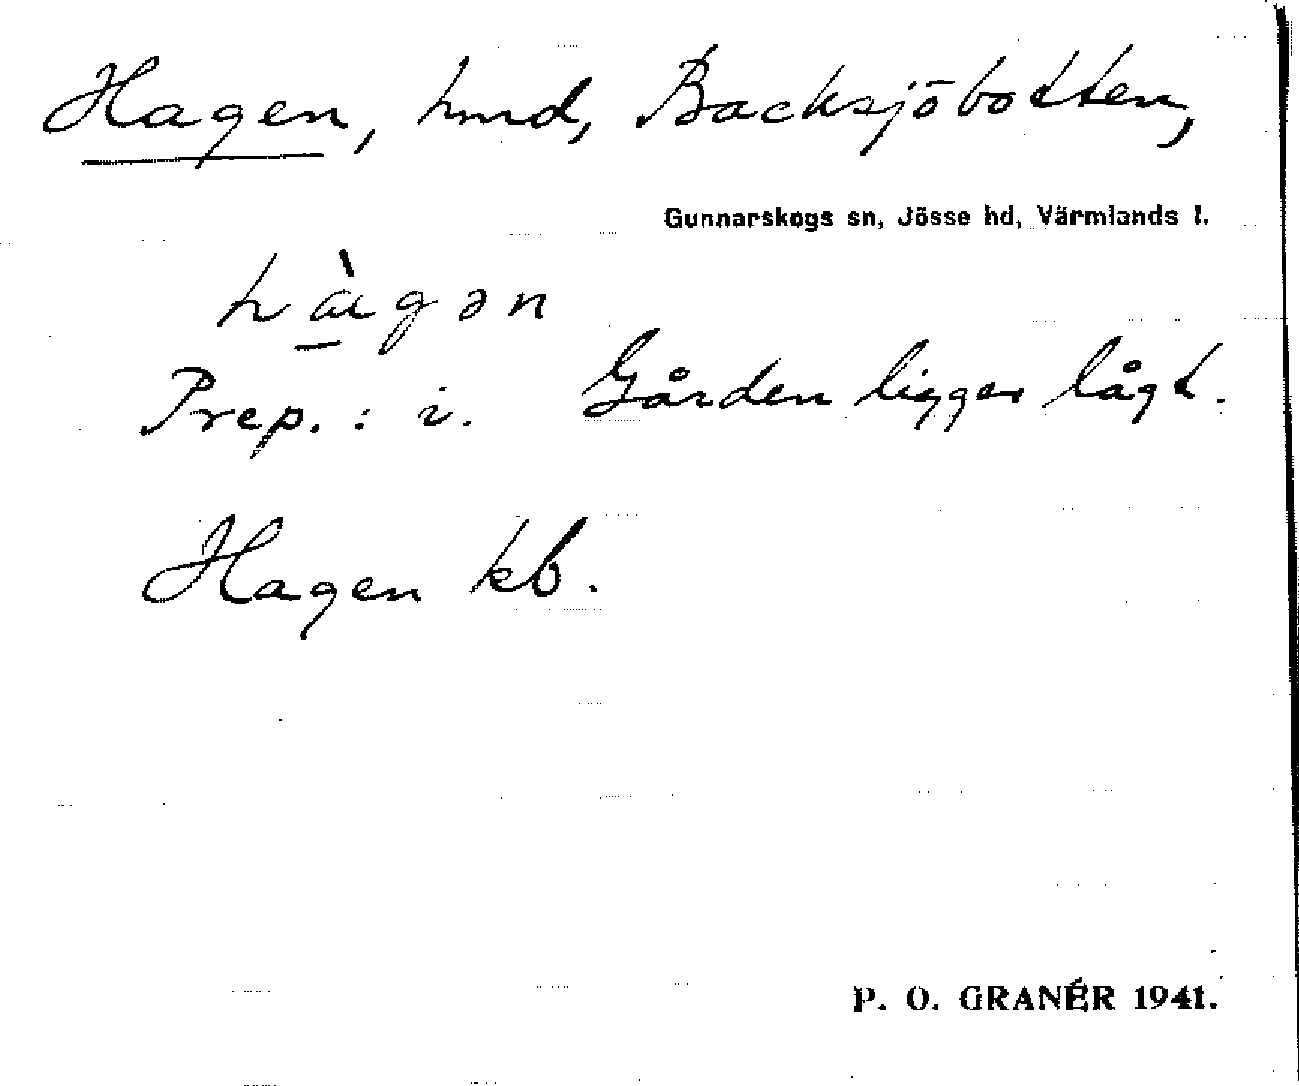 Hagen, hmd, Backsjöbotten,
Gunnarskogs sn, Jösse hd, Värmlands l.
hàgən
Prep. : i. Gården ligger lågt.
Hagen kb.
P. O. GRANÉR 1941.